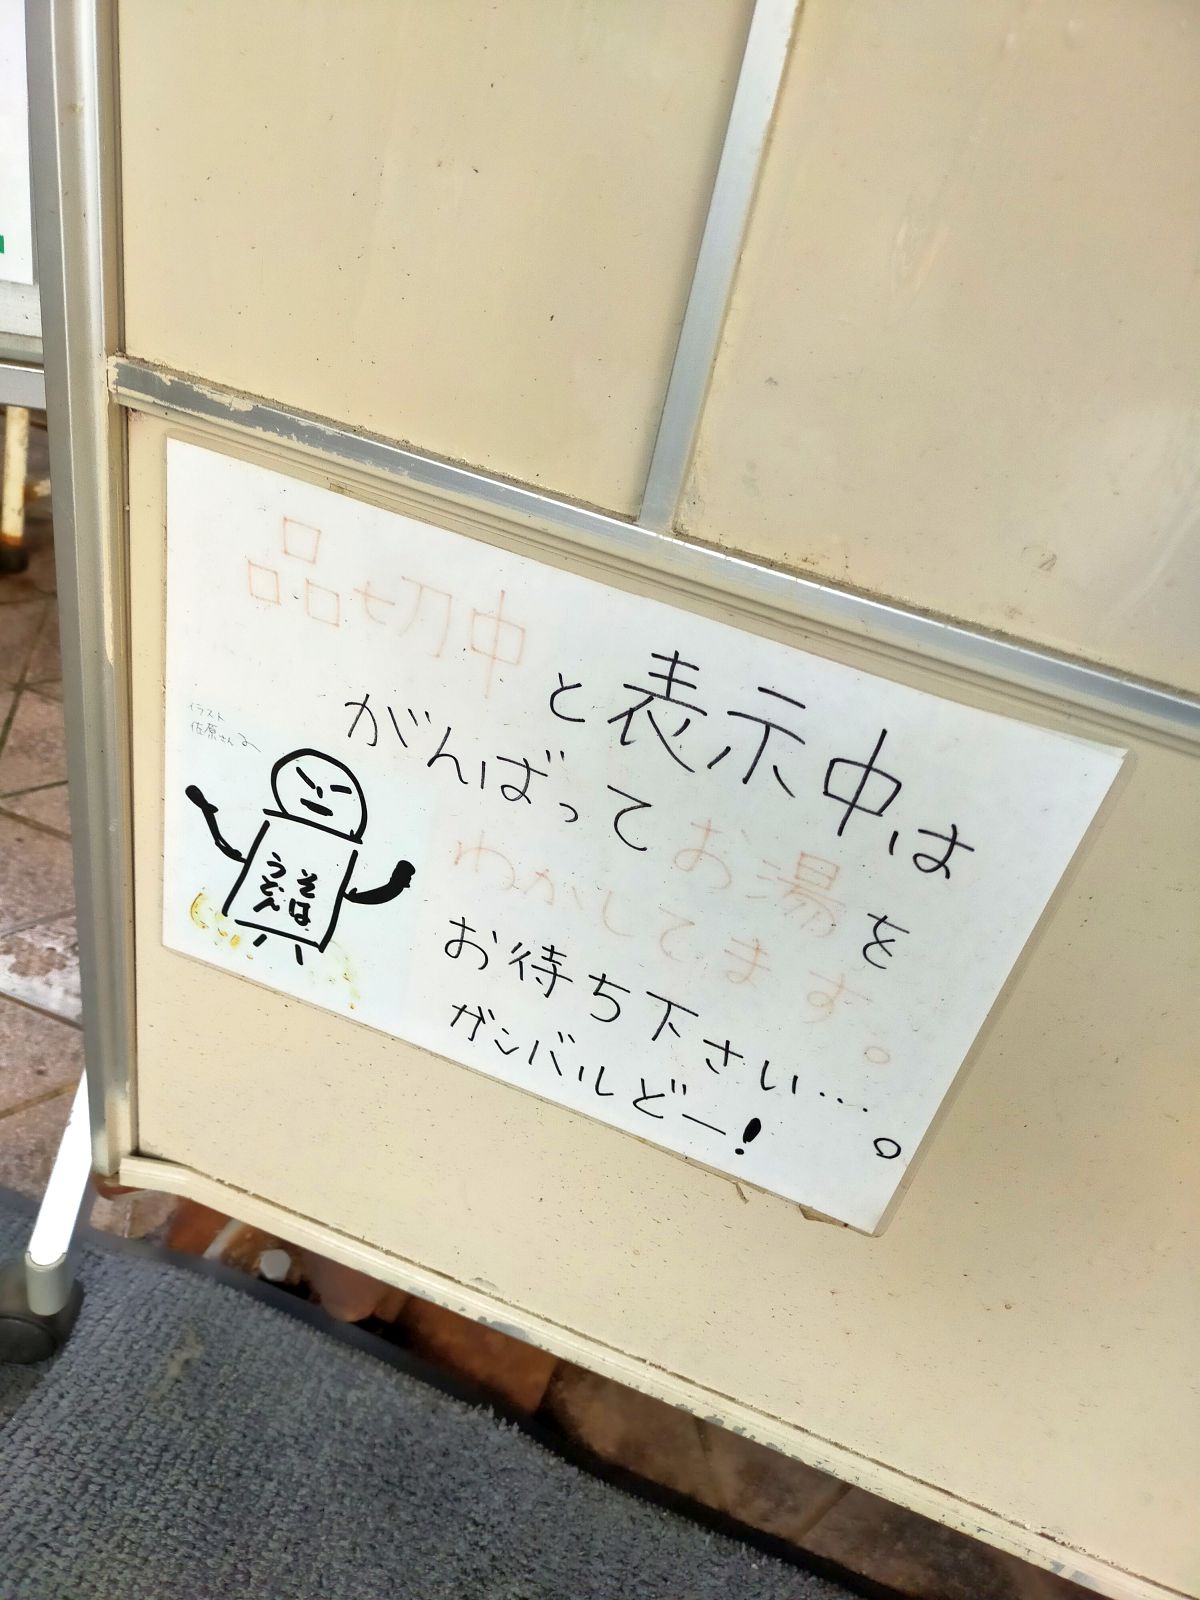 品切中と表示中は
がんばってお湯を
わかしてます。
お待ち下さい…。
ガンバルどー!
イラスト
佐原さん
そば
うどん